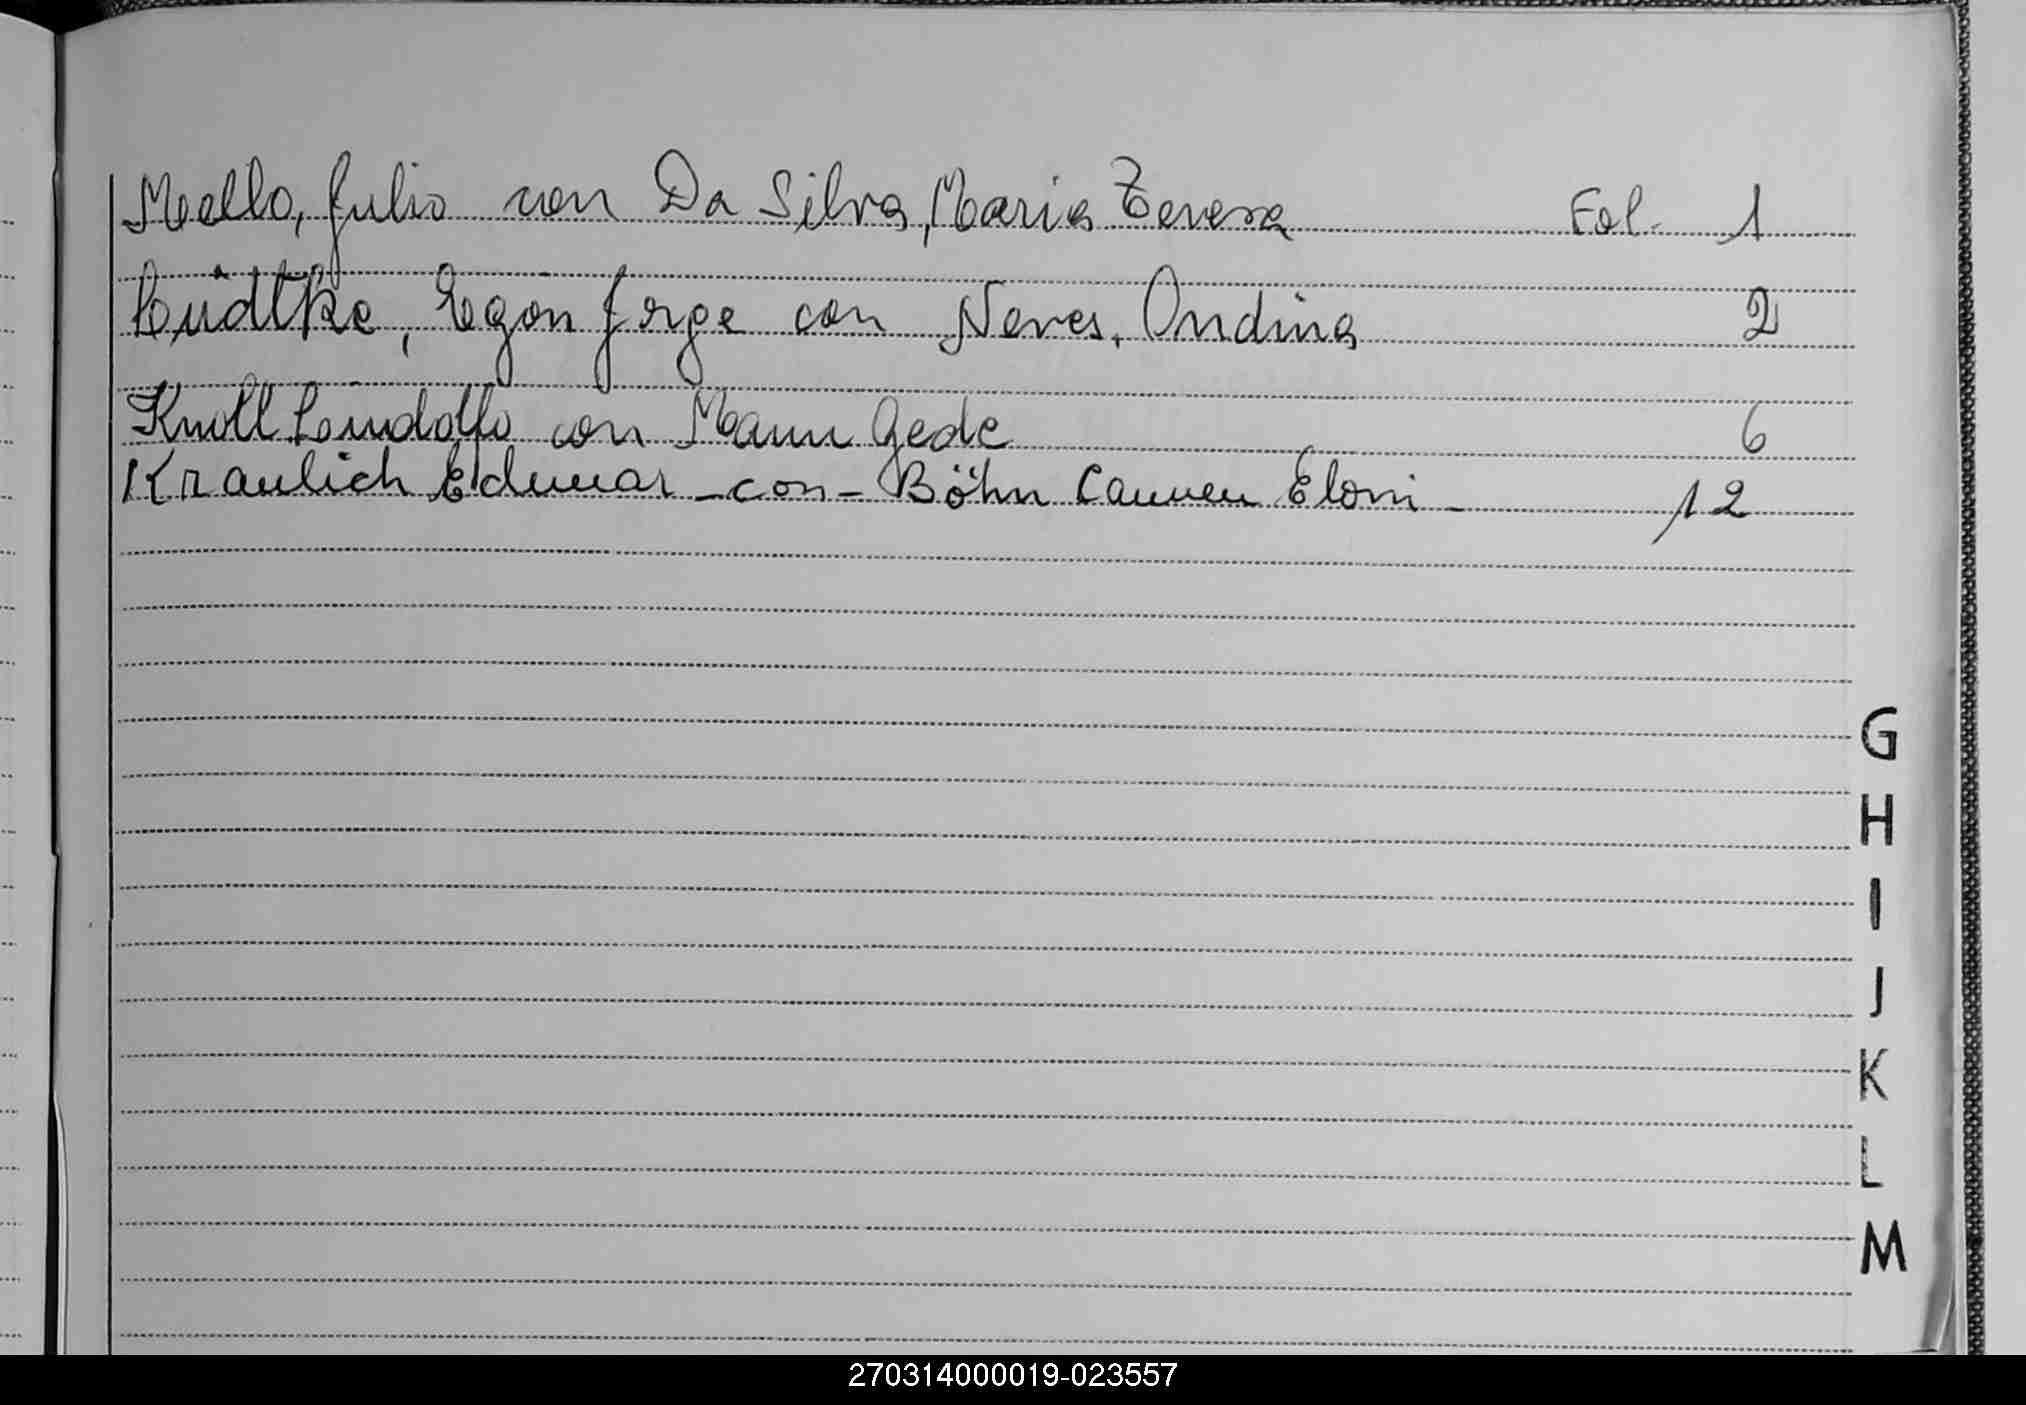 Mello, Julio con Da Silva, Maria Teresa Fol. 1
Lüdtke, Egon Jorge con Neves, Ondina 2
Knoll Lindolfo con Mann Gede 6
Kraulich Edmar - con - Böhn Carmen Eloni - 12
G
H
I
J
K
L
M
270314000019-023557